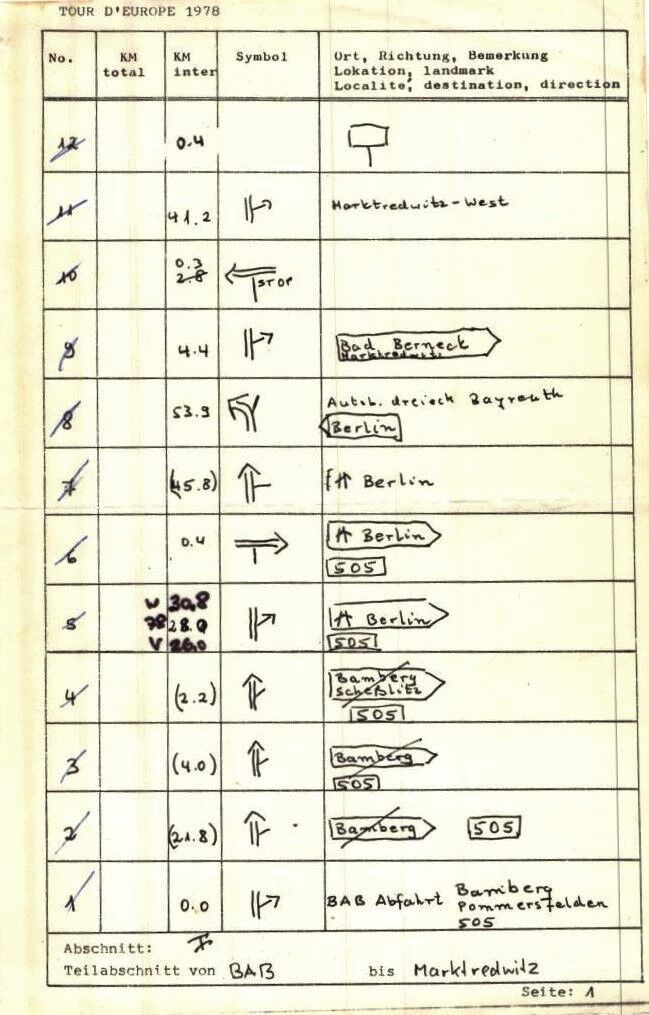 TOUR D'EUROPE 1978
No. KM total KM inter Symbol Ort, Richtung, Bemerkung
Lokation, landmark
Localite, destination, direction
12 0.4
11 41.2 Marktredwitz-West
10 0.3
2.8 STOP
9 4.4 Bad Berneck
Marktredwitz
8 53.9 Autob. dreieck Bayreuth
Berlin
7 (45.8) Berlin
6 0.4 Berlin
505
5 W 30,8
78 28.0 Berlin
V 26,0 505
4 (2.2) Bamberg
Scheßlitz
505
3 (4.0) Bamberg
505
2 (21.8) Bamberg 505
1 0.0 BAB Abfahrt Bamberg
Pommersfelden
505
Abschnitt: I
Teilabschnitt von BAB bis Marktredwitz
Seite: 1